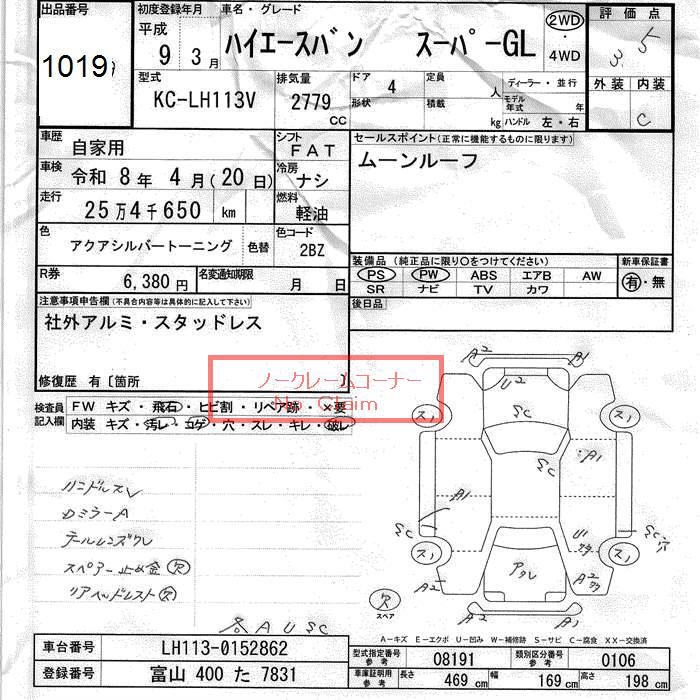 出品番号
1019
初度登録年月
平成
9 3月
車名・グレード
ハイエースバン スーパーGL
2WD
4WD
評価点
3 5
外装 内装
C
型式
KC-LH113V
排気量
2779
CC
ドア 4
形状
定員
人
積載
kg
ディーラー・並行
モデル年式 年
ハンドル 左・右
車歴
自家用
シフト
FAT
車検
令和 8年 4月(20日)
冷房
ナシ
走行
25万4千650 km
燃料
軽油
色
アクアシルバートーニング
色替
色コード
2BZ
R券
6,380円
名変通知期限
月 日
セールスポイント(正常に機能するものに限ります)
ムーンルーフ
装備品(純正品に限り○をつけてください)
PS PW ABS エアB AW
SR ナビ TV カワ
新車保証書
有・無
後日品
注意事項申告欄(不具合内容等は具体的に記入して下さい)
社外アルミ・スタッドレス
修復歴 有〔箇所 〕
ノークレームコーナー
No Claim
検査員記入欄
FW キズ・飛石・ヒビ割・リペア跡・×要
内装 キズ・汚レ・コゲ・穴・スレ・キレ・破レ
ハンドルスレ
ロミラーA
テールレンズクレ
スペアー止め金 欠
リアヘッドレスト 欠
A U SC
A2 A1
U2
スノ SC スノ
SC A1
A1
SC SC 穴
スノ U1 スノ
A2 アクレ A2
欠
スペア
A2 A1
A-キズ E-エクボ U-凹み W-補修跡 S-サビ C-腐食 XX-交換済
車台番号
LH113-0152862
登録番号
富山 400 た 7831
型式指定番号 参考
08191
類別区分番号 参考
0106
車庫証明用 参考
長さ 469 cm 幅 169 cm 高さ 198 cm